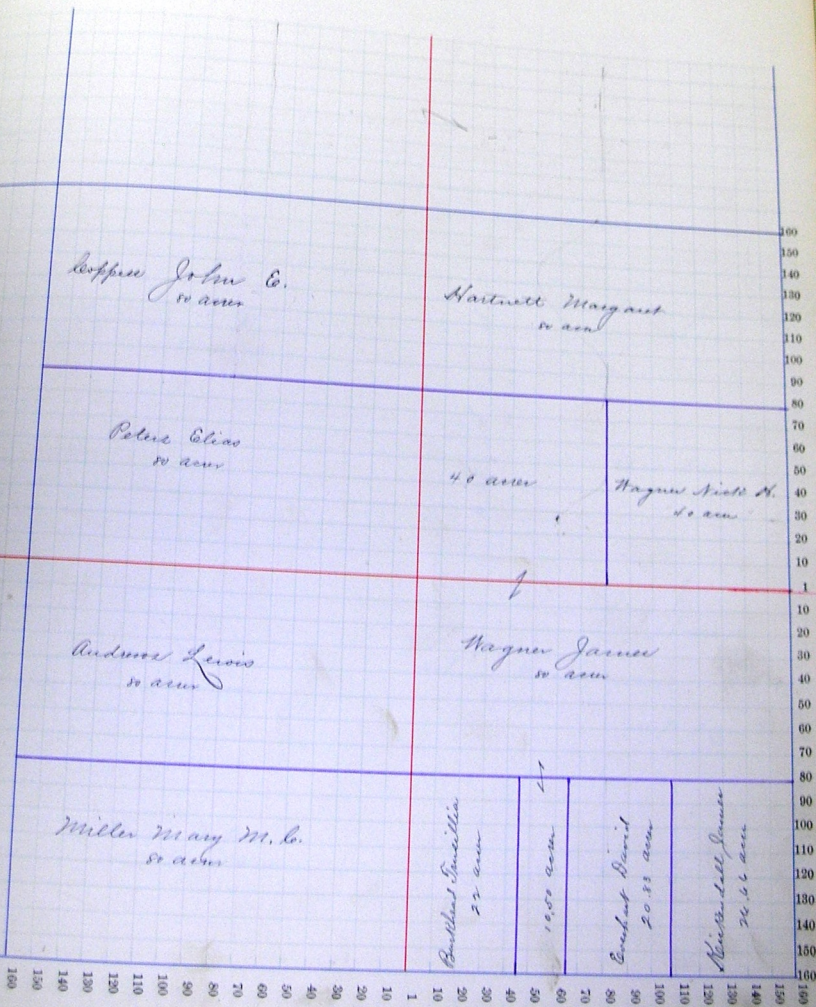 John E.
80 acres
Hartnett Margaret
80 acres
Peters Elias
80 acres
40 acres
Wagner Nick H.
40 acres
Andrews Lewis
80 acres
Wagner James
80 acres
Miller Mary M. C.
80 acres
22 acres
10.50 acres
Everhart David
20.83 acres
James
26.66 acres
160
150
140
130
120
110
100
90
80
70
60
50
40
30
20
10
1
10
20
30
40
50
60
70
80
90
100
110
120
130
140
150
160
160 150 140 130 120 110 100 90 80 70 60 50 40 30 20 10 1 10 20 30 40 50 60 70 80 90 100 110 120 130 140 150 160